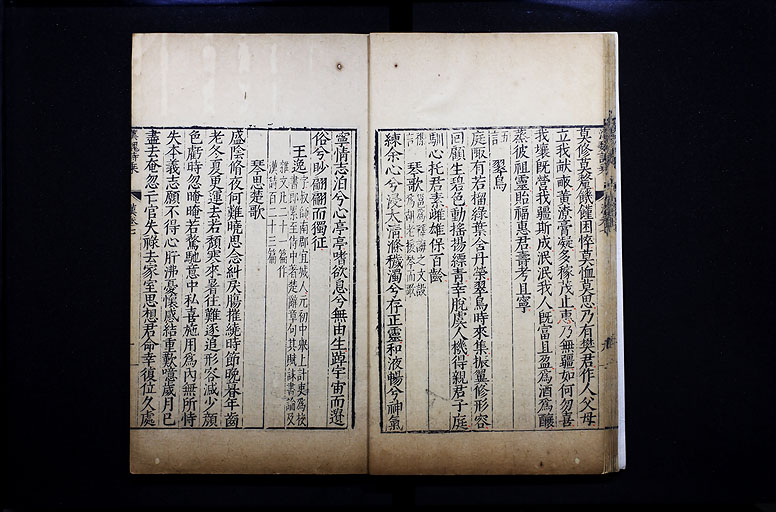 莫修莫釐饑饉困悴莫恤莫思乃有樊君作人父母
立我畎畝黃潦膏凝多稼茂止惠乃無疆如何勿喜
我壤既營我疆斯成泯泯我人既富且盈為酒為釀
蒸彼祖靈貽福惠君壽考且寧
翠鳥
庭陬有若榴綠葉含丹榮翠鳥時來集振翼修形容
回顧生碧色動搖揚縹青幸脫虞人機得親君子庭
馴心托君素雌雄保百齡
琴歌
練余心兮浸太清滌穢濁兮存正靈和液暢兮神氣
寧情志泊兮心亭亭嗜欲息兮無由生踔宇宙而遺
俗兮眇翩翩而獨征
王逸 字叔師南郡宜城人元初中舉上計吏為校
書郎累至侍中著楚辭章句其賦誄書論及
雜文凡二十一篇作
漢詩百二十三篇
琴思楚歌
盛陰修夜何難曉思念糾戾腸摧繞時節晚暮年齒
老冬夏更運去若頹寒來暑往難逐追形容減少顏
色虧時忽晻晻若騖馳意中私喜施用為內無所恃
失本義志願不得心肝沸憂懷感結重歎噫歲月已
盡去奄忽亡官失祿去家室思想君命幸復位久處